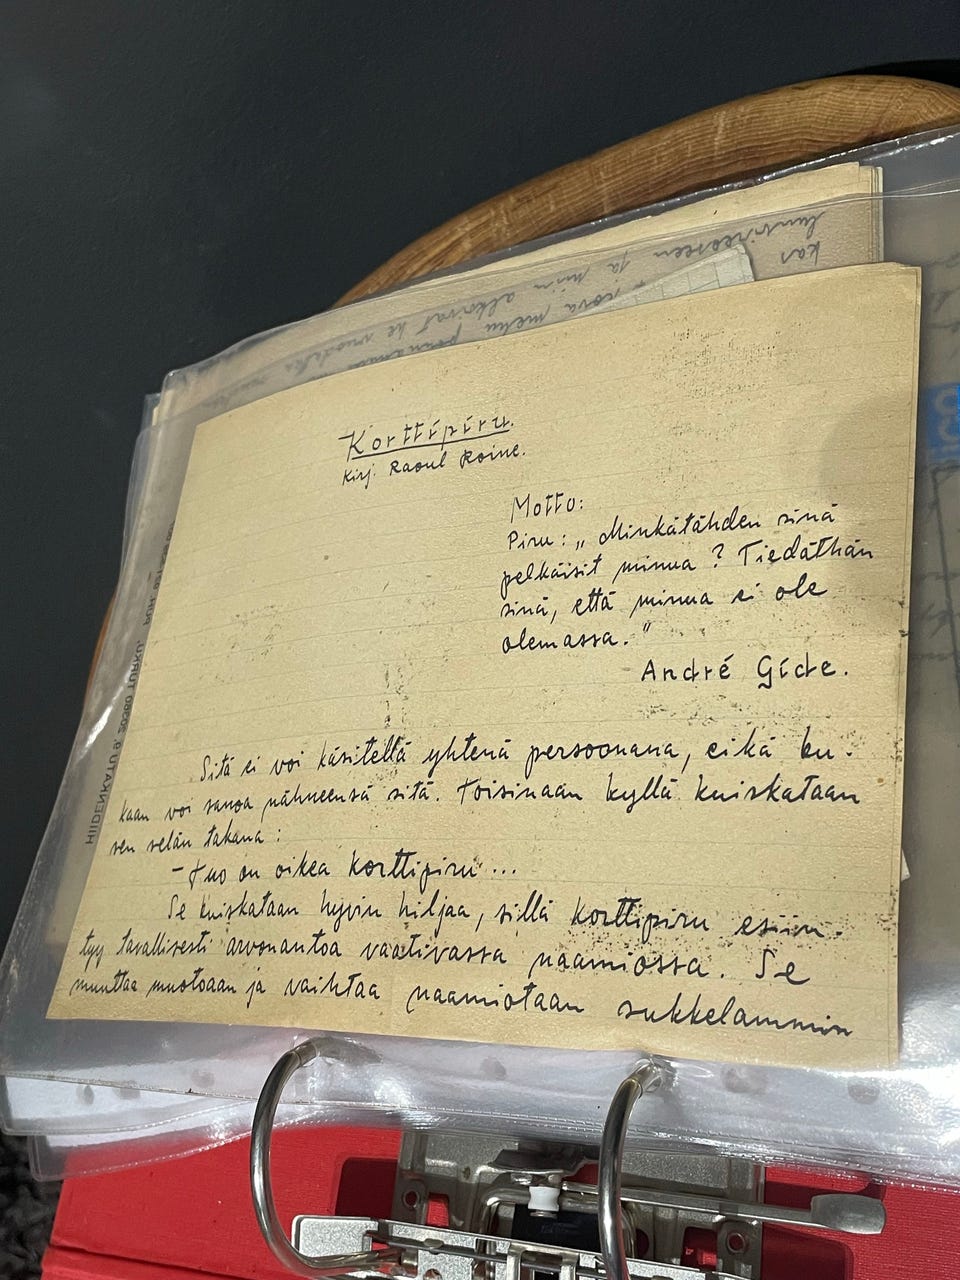 Korttipiru.
Kirj. Raoul Roine.
Motto:
Piru: „Minkätähden sinä
pelkäisit minua? Tiedäthän
sinä, että minua ei ole
olemassa."
André Gide.
Sitä ei voi käsitellä yhtenä persoonana, eikä ku-
kaan voi sanoa nähneensä sitä. Toisinaan kyllä kuiskataan
sen selän takana:
- Tuo on oikea korttipiru...
Se kuiskataan hyvin hiljaa, sillä korttipiru esiin-
tyy tavallisesti arvonantoa vaativassa naamiossa. Se
muuttaa muotoaan ja vaihtaa naamiotaan sukkelammin
HIIDENKATU 9, 20360 TURKU.
kas
ja niin alkoivat he